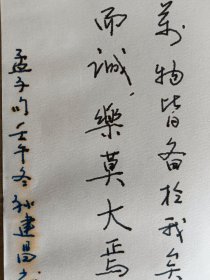 萬物皆备於我矣
而誠，樂莫大焉
孟子句壬午冬孙建昌